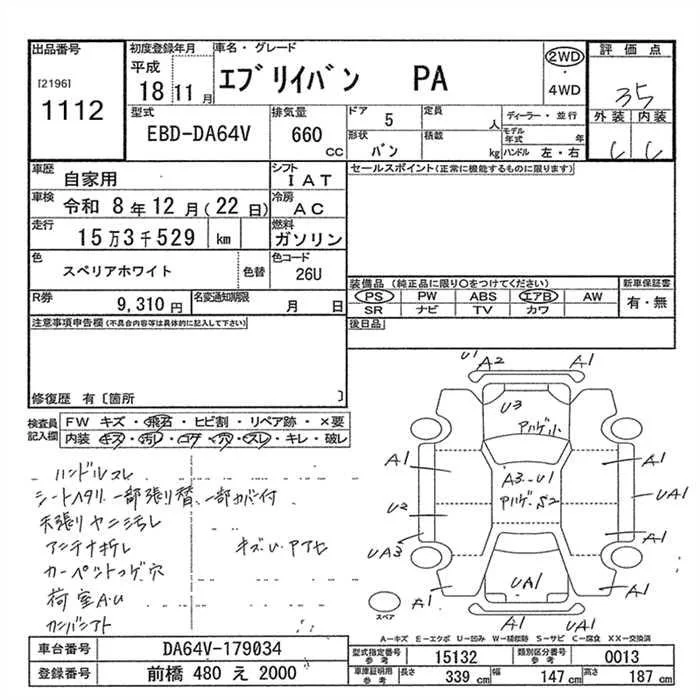 出品番号
[2196]
1112
初度登録年月
平成
18 11 月
車名・グレード
エブリイバン PA
2WD
・
4WD
評価点
35
外装 内装
C C
型式
EBD-DA64V
排気量
660 CC
ドア 5
定員 人
形状 バン
積載 kg
ディーラー・並行
モデル年式 年
ハンドル 左・右
車歴 自家用
シフト IAT
車検 令和 8年 12月(22日)
冷房 AC
走行 15万3千529 km
燃料 ガソリン
色 スペリアホワイト 色替
色コード 26U
R券 9,310円
名変通知期限 月 日
セールスポイント(正常に機能するものに限ります)
装備品(純正品に限り〇をつけてください)
PS PW ABS エアB AW
SR ナビ TV カワ
新車保証書
有・無
後日品
注意事項申告欄(不具合内容等は具体的に記入して下さい)
修復歴 有〔箇所 〕
検査員記入欄
FW キズ・飛石・ヒビ割・リペア跡・×要
内装 キズ・汚レ・コゲ・穴・スレ・キレ・破レ
ハンドルスレ
シートヘタリ、一部張り替、一部カバー付
天張りヤニ汚レ
アンテナ折レ
キズ・U・アリ
カーペットコゲ穴
荷室A・U
U1 A2 A1
U3
アハゲ小
A1 A3-U1 A1
アハゲ・S2
UA1
U2
UA3 A1
UA1
A1 A1 UA1
スペア
A-キズ E-エクボ U-凹み W-補修跡 S-サビ C-腐食 XX-交換済
車台番号 DA64V-179034
登録番号 前橋 480 え 2000
型式指定番号 参考 15132
類別区分番号 参考 0013
車庫証明用 参考 長さ 339 cm 幅 147 cm 高さ 187 cm